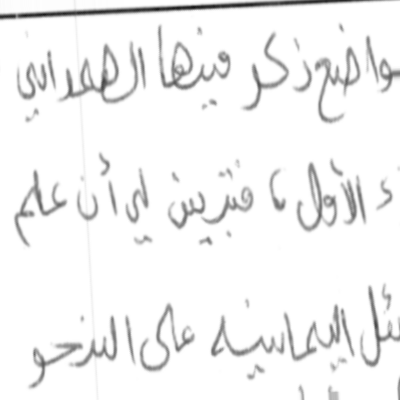 واضع ذكر فيها الهمداني
ء الأول، فتبين لي أن علم
ئل اليمانية على النحو